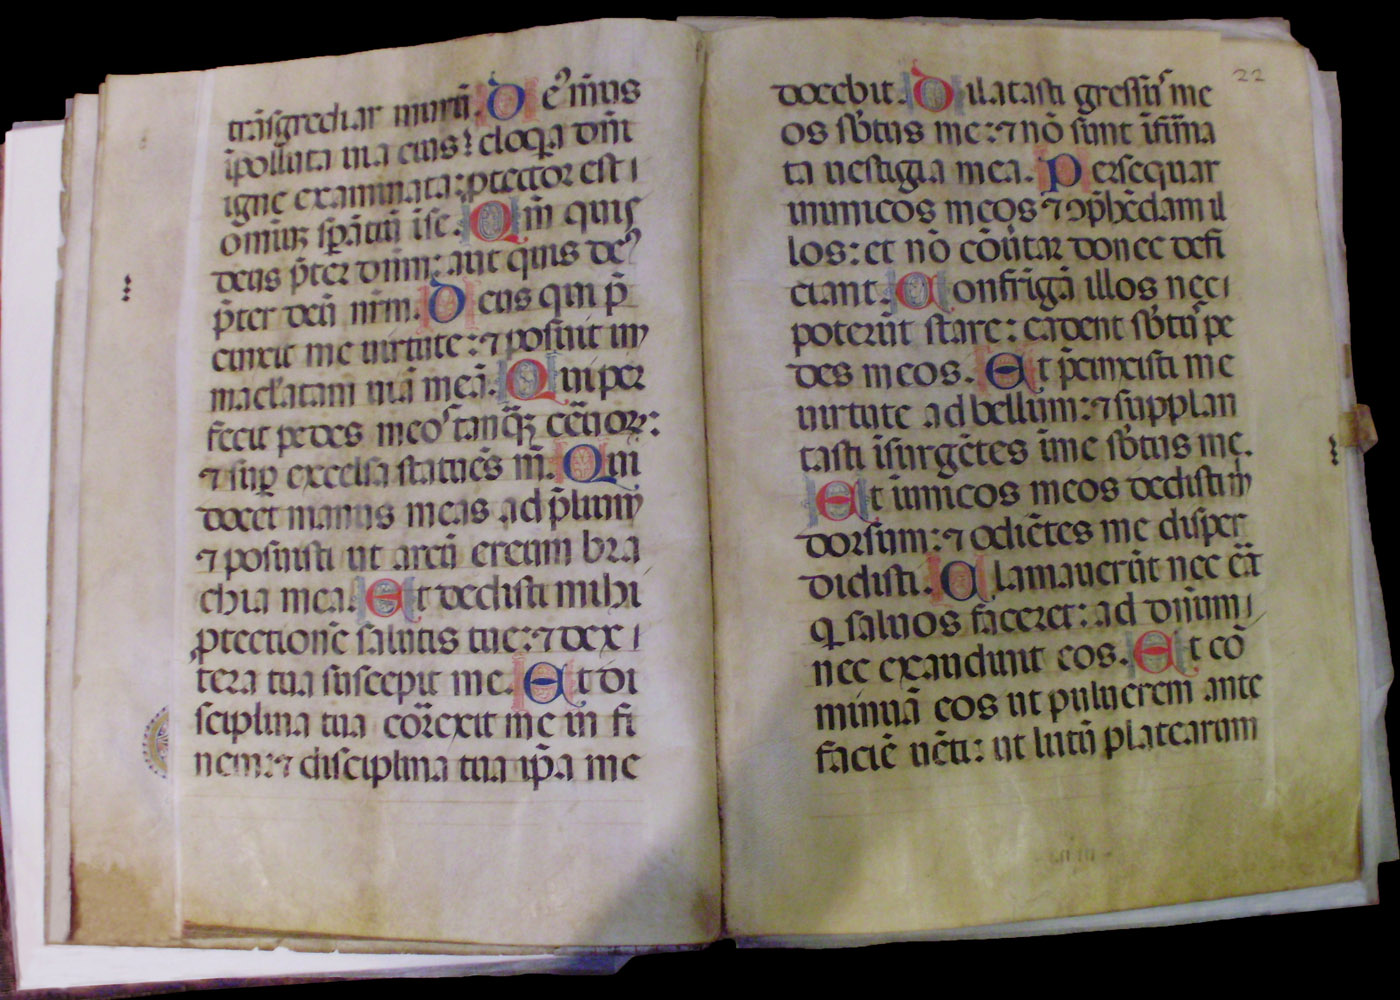 trāsgrediar murū. Deꝰ mīus
īpolluta uia eius: eloq̄a dn̄i
igne examinata: ꝓtector est
om̄iuꝫ sꝑātiū ī se. Qm̄ quis
deus p̄ter dn̄m: aut quis deꝰ
p̄ter deū nr̄m. Deus qui p̄
cinxit me uirtute: ⁊ posuit im
maclatam uiā meā. Qui per
fecit pedes meos tanq̄ꝫ ceruoꝝ:
⁊ suꝑ excelsa statuēs m̄. Qui
docet manus meas ad p̄lium
⁊ posuisti ut arcū ereum bra
chia mea. Et dedisti mihi
ꝓtectionē salutis tue: ⁊ dex
tera tua suscepit me. Et di
sciplina tua corr̄exit me in fi
nem: ⁊ disciplina tua ip̄a me
docebit. Dilatasti gressus me
os sb̄tus me: ⁊ nō sunt īfirma
ta uestigia mea. Persequar
inimicos meos ⁊ ꝯp̄hēdam il
los: et nō cōuertar donec defi
ciant. Confrīgā illos nec
poterūt stare: cadent sb̄tus pe
des meos. Et p̄cinxisti me
uirtute ad bellum: ⁊ supplan
tasti īsurgētes ī me sb̄tus me.
Et inimicos meos dedisti m̄
dorsum: ⁊ odiētes me disper
didisti. Clamauerūt nec erat
q̄ saluos faceret: ad dominum
nec exaudiuit eos. Et cō
minuā eos ut puluerem ante
faciē uēti: ut lutū platearum
22